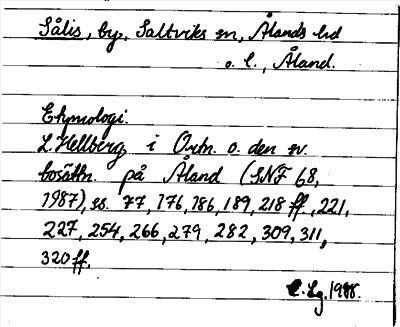 Sålis, by, Saltviks sn, Ålands hd
o. l., Åland.
Etymologi.
L. Hellberg i Ortn. o. den sv.
bosättn. på Åland (SNF 68,
1987), ss. 77, 176, 186, 189, 218 ff., 221,
227, 254, 266, 279, 282, 309, 311,
320 ff.
1988.